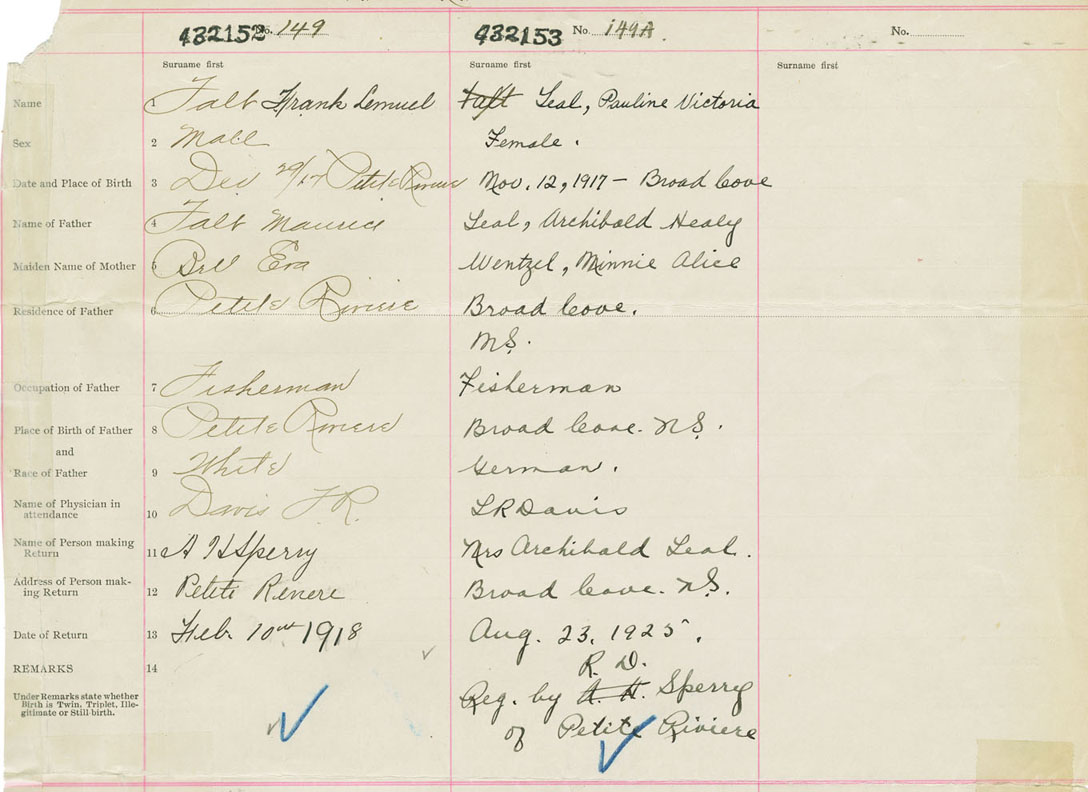 432152 No. 149 432153 No. 149A No.
Surname first Surname first Surname first
Name 1 Talb Frank Lemuel Taft Leal, Pauline Victoria
Sex 2 Male Female.
Date and Place of Birth 3 Dec 29/17 Petite Riviere Nov. 12, 1917 - Broad Cove
Name of Father 4 Talb Maurice Leal, Archibald Healy
Maiden Name of Mother 5 Bell Eva Wentzel, Minnie Alice
Residence of Father 6 Petite Riviere Broad Cove.
N.S.
Occupation of Father 7 Fisherman Fisherman
Place of Birth of Father 8 Petite Riviere Broad Cove. N.S.
and
Race of Father 9 White German.
Name of Physician in
attendance 10 Davis F. R. F R Davis
Name of Person making
Return 11 A H Sperry Mrs Archibald Leal.
Address of Person mak-
ing Return 12 Petite Riviere Broad Cove. N.S.
Date of Return 13 Feb. 10th 1918 Aug. 23, 1925.
REMARKS 14 R. D.
Under Remarks state whether
Birth is Twin, Triplet, Ille-
gitimate or Still-birth.
Reg. by A. H. Sperry
of Petite Riviere